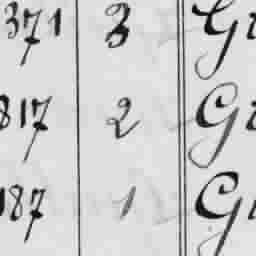 371 3 Gr
817 2 Gr
187 1 Gr